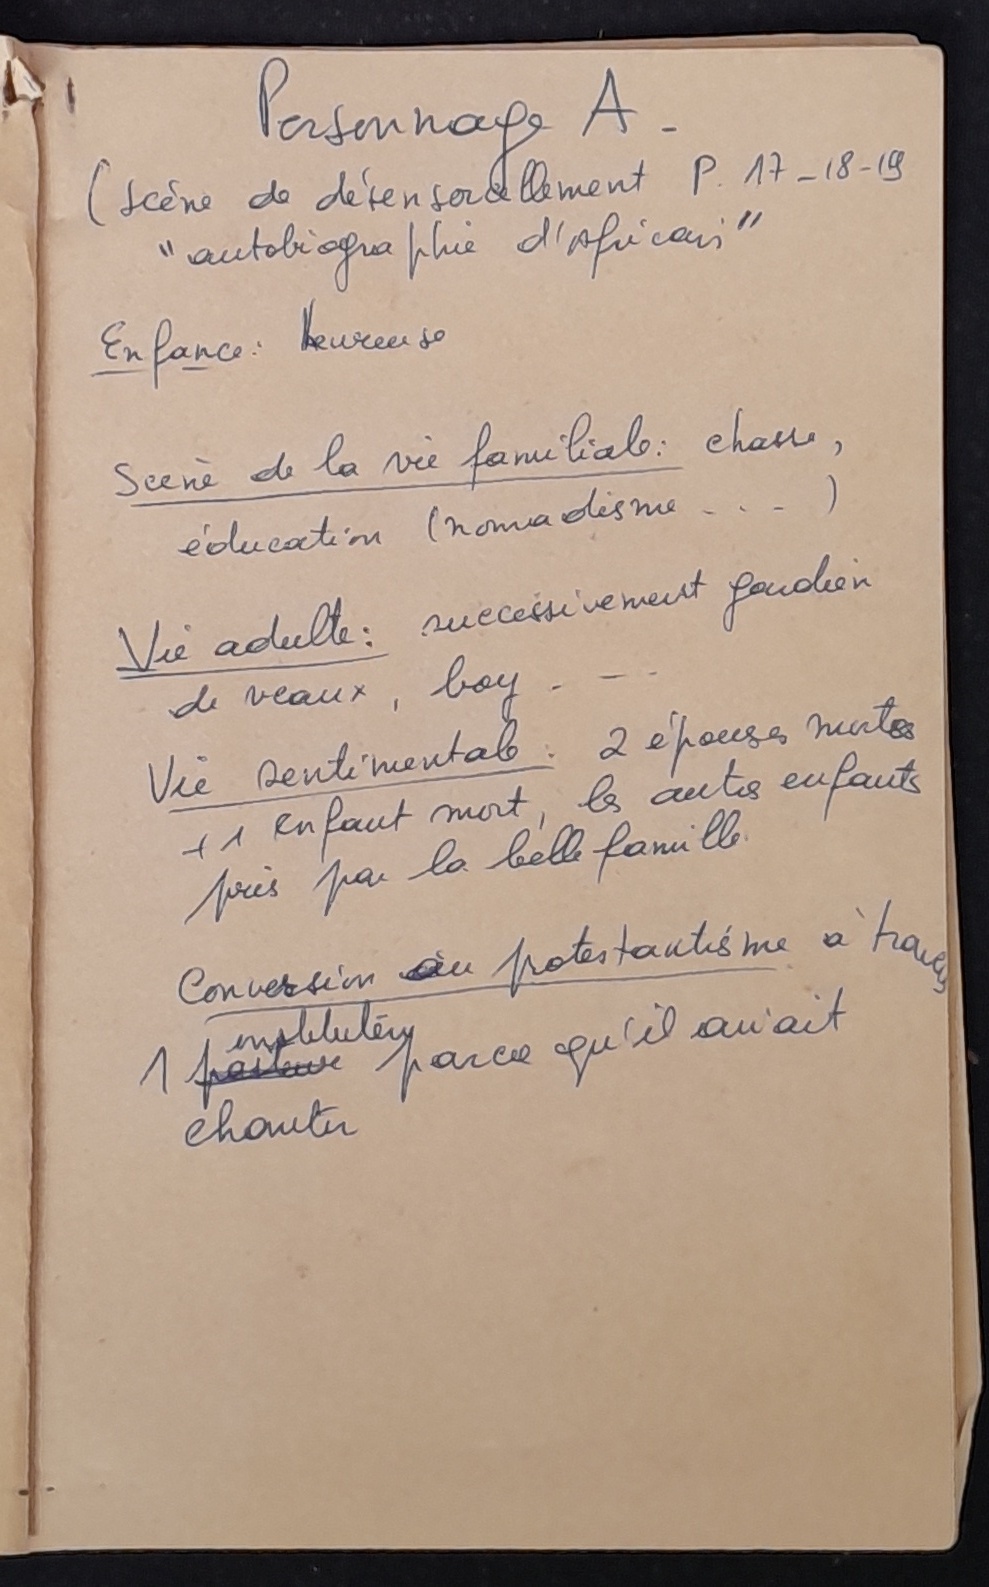 Personnage A -
(scène de désensorcellement P. 17-18-19
"autobiographie d'Africain"
Enfance: heureuse
Scène de la vie familiale: chasse,
éducation (nomadisme - . . )
Vie adulte: successivement gardien
de veaux, boy . - -
Vie sentimentale: 2 épouses mortes
+ 1 enfant mort, les autres enfants
pris par la belle famille.
Conversion au protestantisme à travers
instituteur
1 pasteur parce qu'il aimait
chanter